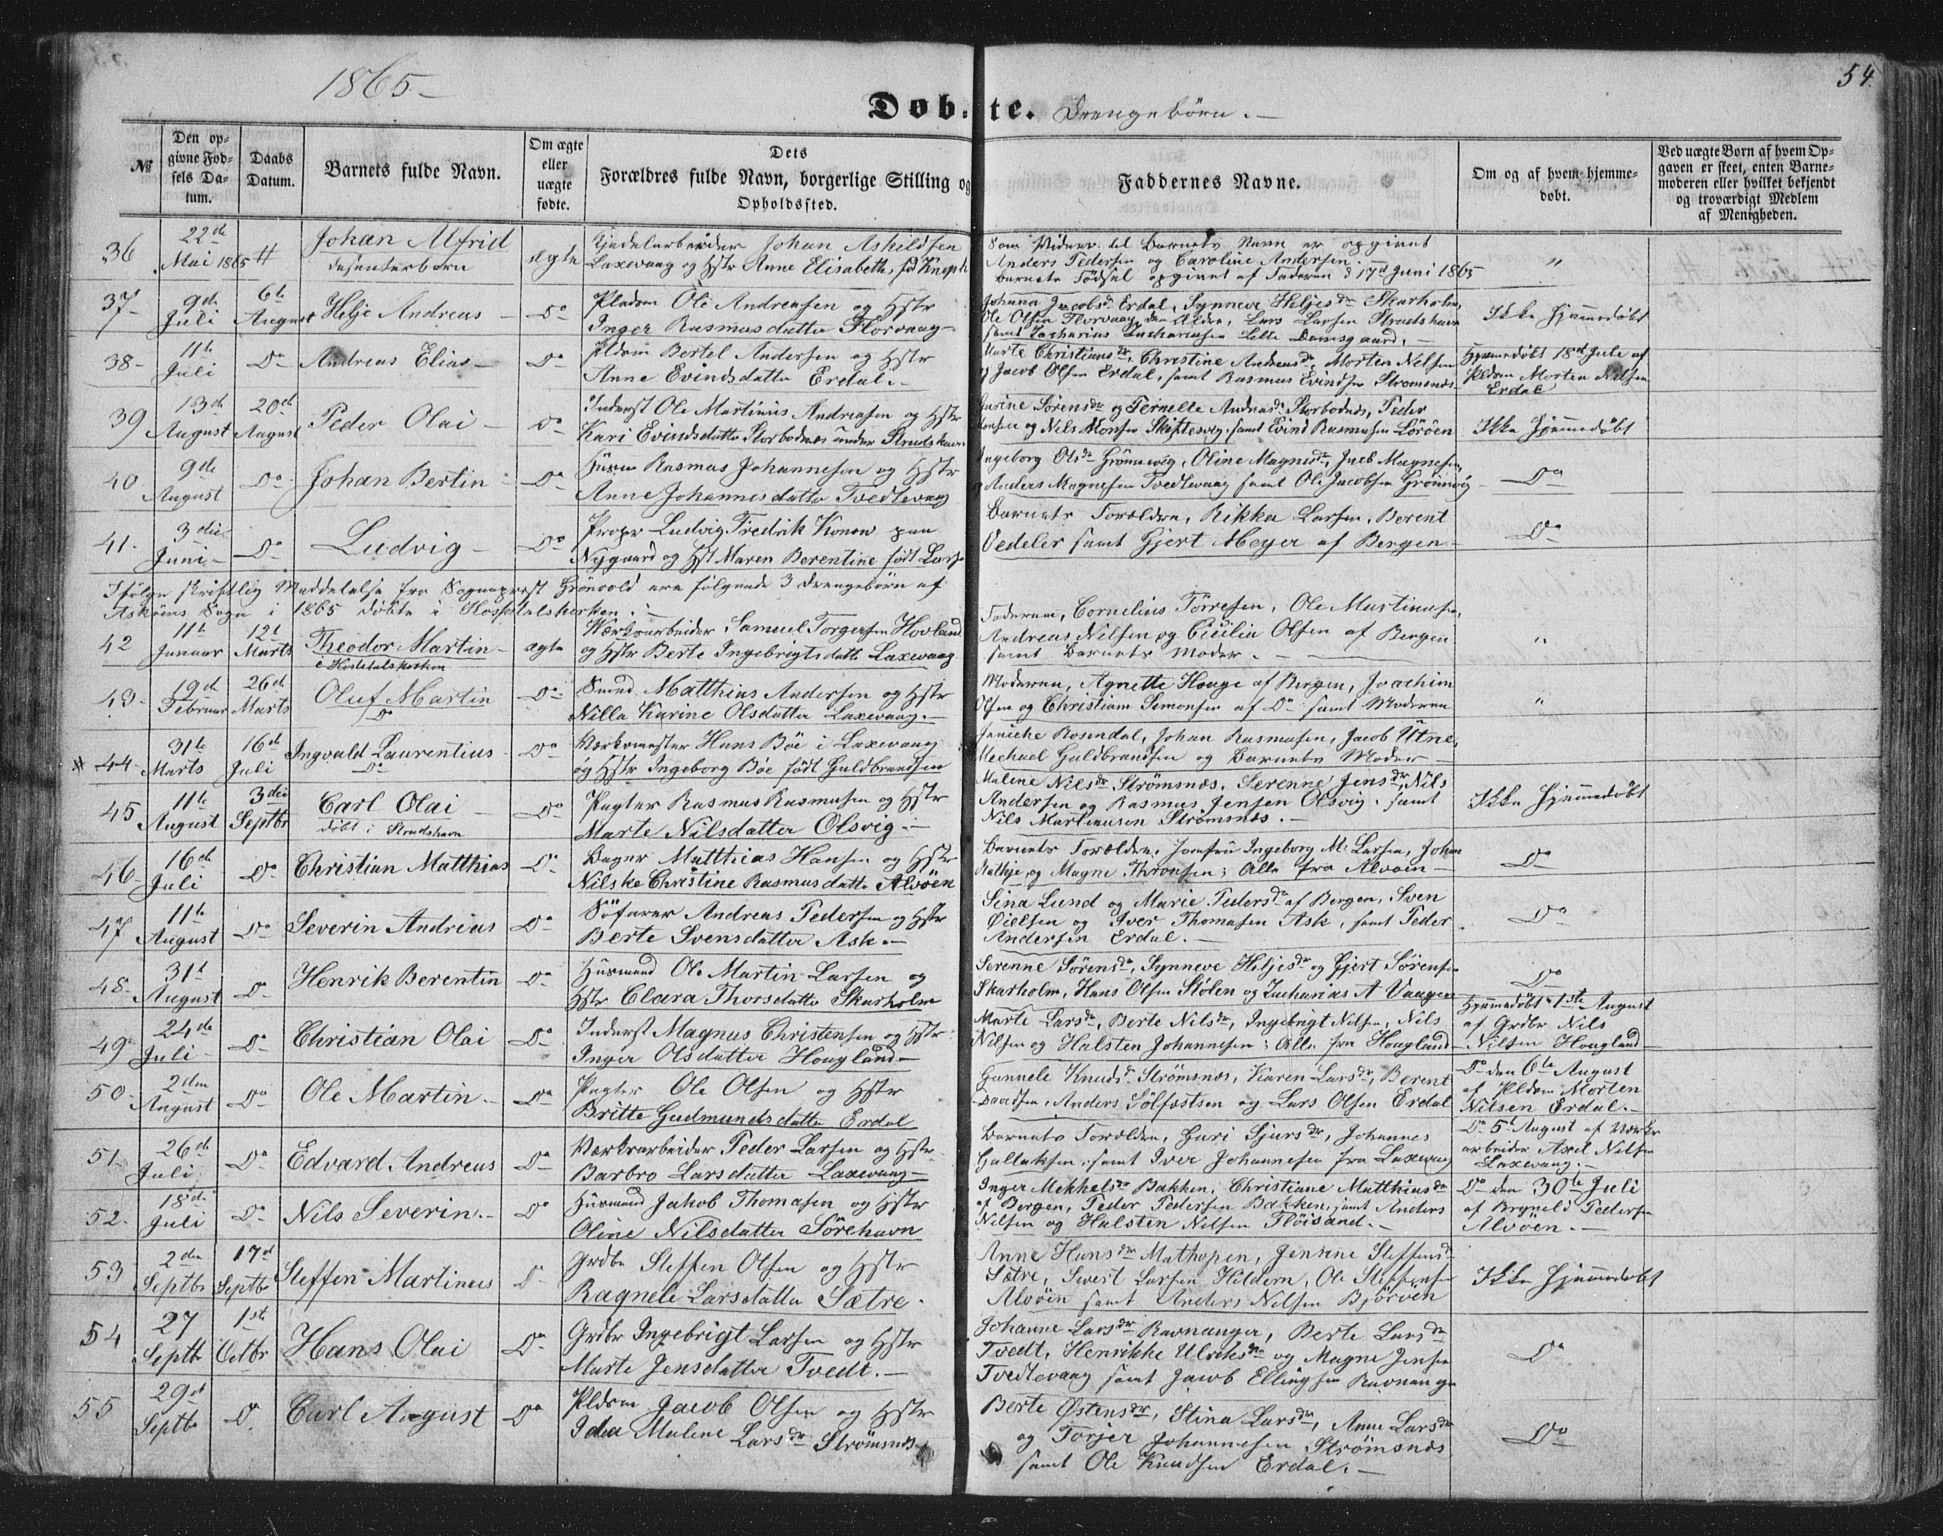 1865 -
54.
Døbte. Drengebørn. -
№
Den opgivne Fødsels Datum.
Daabs Datum.
Barnets fulde Navn.
Om ægte eller uægte fødte.
Dets Forældres fulde Navn, borgerlige Stilling og Opholdssted.
Faddernes Navne.
Om og af hvem hjemmedøbt.
Ved uægte Børn af hvem Opgaven er skeet, enten Barnemoderen eller hvilket bekjendt og troværdigt Medlem af Menigheden.
36 22de Mai 1865 # Johan Alfrid ægte Kjedelarbeider Johan Askildsen
desenterbarn Laxevaag og Hstr Anne Elisabeth, fød Knoph
Som Vidner til Barnets Navn er opgivet
Anders Pedersen og Caroline Andersen.
Barnets Fødsel opgivet af Faderen d 17d Juni 1865 "
37 9de Juli 6te August Helje Andreas - Do Pldsm Ole Andreasen og Hstr
Inger Rasmusdatter Florvaag -
Johana Jacobsdr Erdal, Synneve Heljesdr Skarholm,
Ole Olsen Florvaag den Ældre, Lars Larsen Strudshavn
samt Zacharias Zachariasen Lille Damsgaard. -
Ikke Hjemmedøbt
38 - 11te Juli Do Andreas Elias - Do Pldsm Bertel Andersen og Hstr
Anne Evindsdatter Erdal. -
Marte Christiansdr, Christine Andreasdr, Morten Nilsen
og Jacob Olsen Erdal, samt Rasmus Evindsen Strømsnæs
Hjemmedøbt 18de Juli af
Pldsm Morten Nilsen
Erdal
39 13de August 20de August Peder Olai - Do Inderst Ole Martinus Andreasen og Hstr
Kari Evindsdatter Storbodnes under Strudshavn
Gurine Sørensdr og Pernelle Andreasdr Storbodnes, Peder
Monsen og Nils Monsen Skiftesvig, samt Evind Rasmusen Lørøen
Ikke Hjemmedøbt
40 9de August Do Johan Bertin - Do Huusm Rasmus Johannesen og Hstr
Anne Johannesdatter Tvedtevaag
Ingeborg Olsdr Grønnevig, Oline Magnusdr, Jacb Magnesen,
Anders Magnesen Tvedtevaag samt Ole Jacobsen Grønnevig
- Do
41. 3die Juni - Do Ludvig - Do Propr Ludvig Fredrik Konow paa
Nygaard og Hst Maren Berentine født Lars
Barnets Forældre, Rikka Larsen, Berent
Vedeler samt Gjert Meyer af Bergen -
Do
Ifølge skriftlig Meddelelse fra Sognepræst Grönvold ere følgende 3 Drengebørn af
Askøens Sogn i 1865 døbte i Hospitalskirken. -
42 11te Januar 12te Marts Theodor Martin - ægte Værksarbeider Samuel Torgersen Hovland
i Hospitalskirken og Hstr Berte Ingebrigtsdatter Laxevaag
Faderen, Cornelius Tørresen, Ole Martinusen,
Andreas Nilsen og Cicilia Olsen af Bergen
samt Barnets Moder. -
"
43. 19de Februar 26de Marts Oluf Martin Do Do Smed Matthias Andersen og Hstr
Nilla Karine Olsdatter Laxevaag. -
Moderen, Agnette Hauge af Bergen, Joachim
Olsen og Christiam Simonsen af Do samt Moderen
"
# 44. 31te Marts 16de Juli Ingvald Laurentius Do Do Værksmester Hans Bøe i Laxevaag
og Hstr Ingeborg Bøe født Guldbrandsen
Janicke Rosendal, Johan Rasmusen, Jacob Utne,
Mechael Guldbrandsen og Barnets Moder -
45 11te August 3die Septbr Carl Olai - Do Pagter Rasmus Rasmusen og Hstr
Døbt i Strudshavn Marte Nilsdatter Olsvig. -
Malene Nilsdr Strømsnæs, Serenne Jensdr, Nils
Andersen og Rasmus Jensen Olsvig. samt
Nils Martinusen Strømsnæs. -
Ikke Hjemmedøbt
46 - 16de Juli Do Christian Matthias Do Bager Matthias Hansen og Hstr
Nilske Christine Rasmusdatter Alvøen
Barnets Forældre, Jomfru Ingeborg M. Larsen, Johan
og Magne Thronsen; Alle fra Alvøen -
Do
47 11te August Do Severin Andreas Do Søfarer Andreas Pedersen og Hstr
Berte Svensdatter Ask. -
Sina Lund og Marie Pedersdr af Bergen, Sven
Øielsen og Iver Thomasen Ask, samt Peder
Andersen Erdal. -
Do
48. 31te August Do Henrik Berentin Do Huusmand Ole Martin Larsen og
Hstr Clara Thorsdatter Skarholm
Serenne Sørensdr, Synneve Heljesdr og Gjert Sørensen
Skarholm, Hans Olsen Stølen og Zacharias A Vaagen
Do
49 24de Juli - Do Christian Olai Do Inderst Magnus Christensen og Hstr
Inger Olsdatter Hougland -
Marte Larsdr, Berte Nilsdr, Ingebrigt Nilsen, Nils
Nilsen og Halsten Johannesen; Alle fra Hougland
Hjemmedøbt 1ste August
af Grdbr Nils
Nilsen Hougland
50 2den August Do Ole Martin - Do Pagter Ole Olsen og Hstr
Britte Gudmundsdatter Erdal
Gunnele Knudsdr Strømsnæs, Karen Larsdr, Berent
Davidsen, Anders Sølfæstsen og Lars Olsen Erdal
Do den 6te August
af Pldsm Morten
Nilsen Erdal. -
51 26de Juli - Do Edvard Andreas Do Værksarbeider Peder Larsen og Hstr
Barbro Larsdatter Laxevaag -
Barnets Forældre, Guri Sjursdr, Johannes
Gullaksen, samt Iver Johannesen fra Laxevaag
Do 5te August af Værksarbeider Axel Nilsen
Laxevaag. -
52. 18de Juli Do Nils Severin. - Do Huusmand Jakob Thomasen og Hstr
Oline Nilsdatter Sørehavn
Inger Mekkelsdr Bakken, Christiane Matthiasdr
af Bergen, Peder Pedersen Bakken, samt Anders
Nilsen og Halsten Nilsen Fløisand. -
Do den 30te Juli
af Brynild Pedersen
Alvøen. -
53 2den Septbr 17de Septbr Steffen Martinus Do Grdbr Steffen Olsen og Hstr
Ragnele Larsdatter Sætre.
Anne Hansdr Mathopen, Jensine Steffensdr
Sætre, Sivert Larsen Hildern, Ole Steffensen
Alvøen samt Anders Nilsen Bjørøen
Ikke Hjemmedøbt
54 27 Septbr 1ste Octbr Hans Olai Do Grdbr Ingebrigt Larsen og Hstr
Marte Jensdatter Tvedt. -
Johanne Larsdr Ravnanger, Berte Larsdr
Tvedt, Henrikke Ulriksdr og Magne Jensen
Tvedtevaag samt Jacob Ellingsen Ravnanger
Do
55 29de Septbr Do Carl August Do Pldsm Jacob Olsen og Hstr
Idea Malene Larsdr Strømsnæs
Berte Østensdr, Stina Larsdr, Anne Larsdr
og Torjer Johannesen Strømsnæs
samt Ole Knudsen Erdal. -
Do